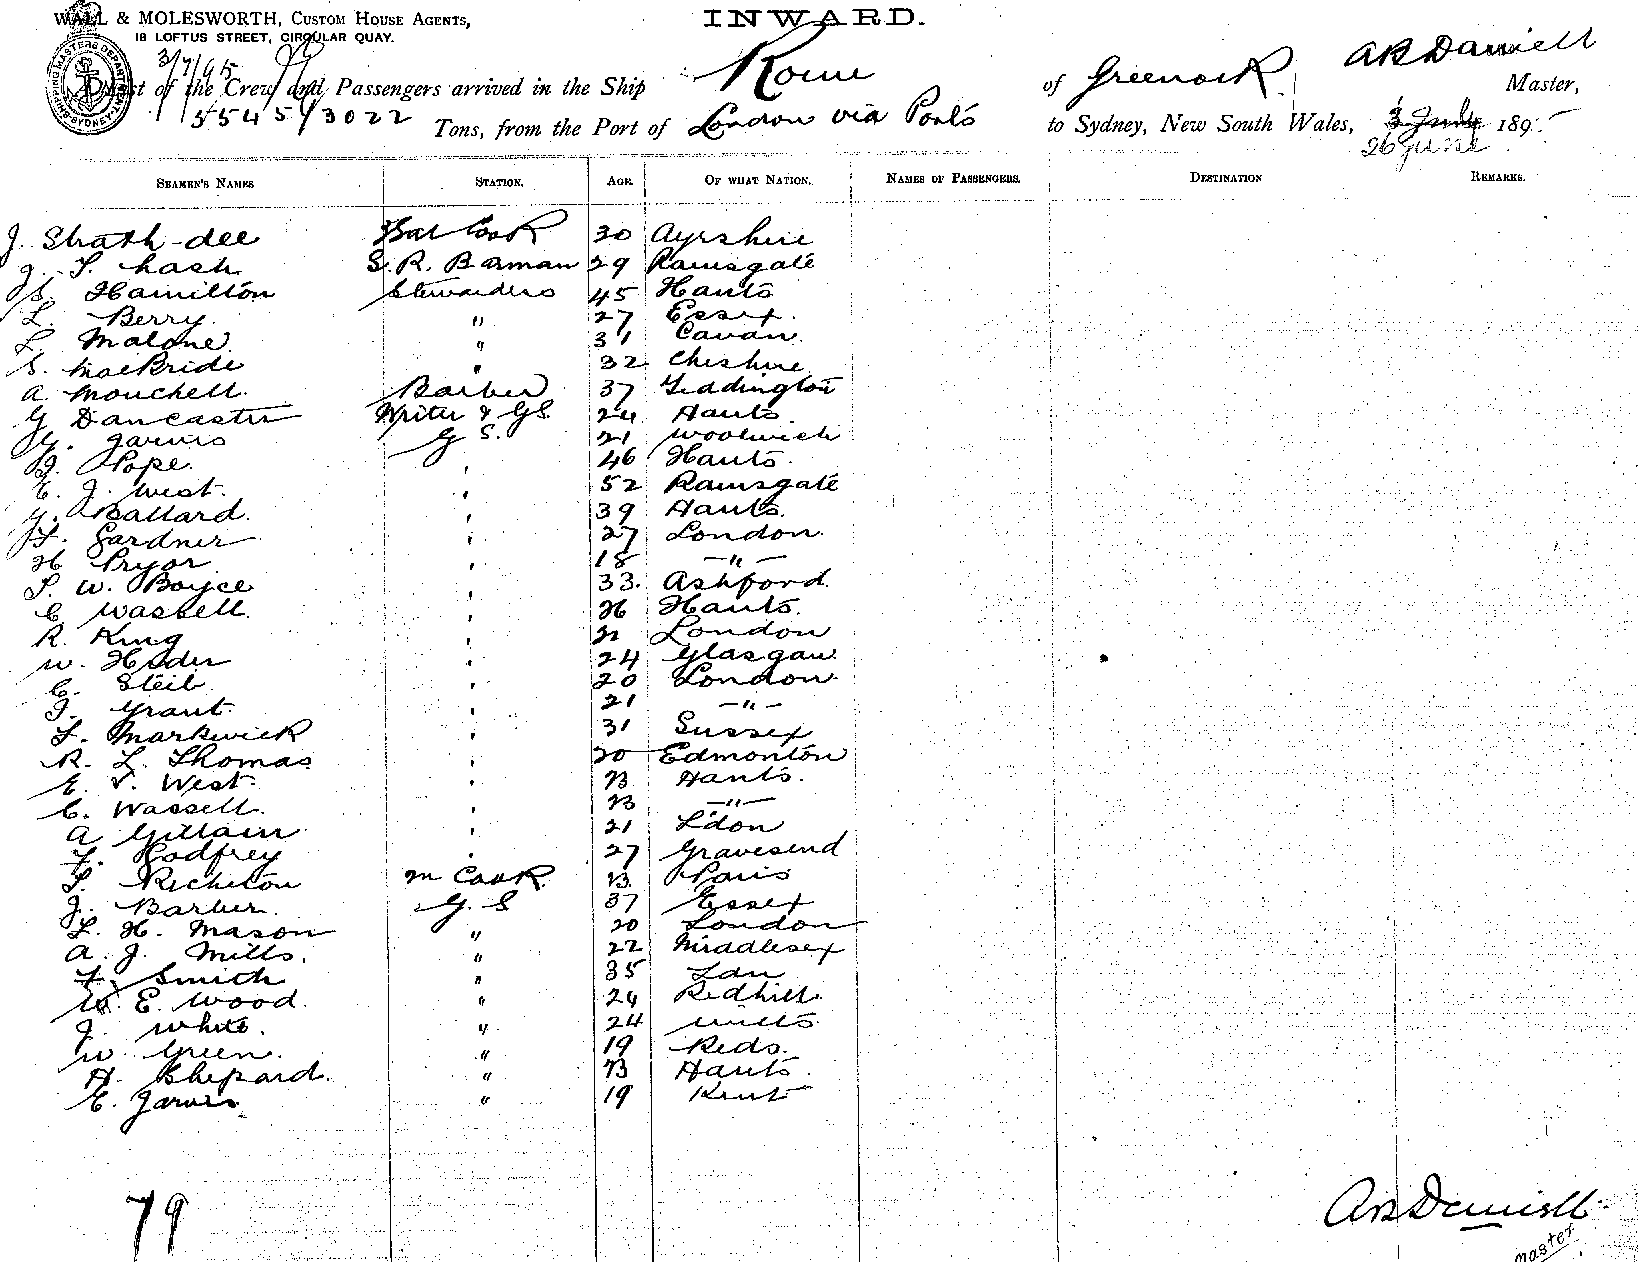 WALL & MOLESWORTH, CUSTOM HOUSE AGENTS,
18 LOFTUS STREET, CIRCULAR QUAY.
INWARD.
3/7/95
A List of the Crew and Passengers arrived in the Ship Rome of Greenock A B Daniell Master,
5545/3022 Tons, from the Port of London via Ports to Sydney, New South Wales, 3 July 1895
26 June
SEAMEN'S NAMES STATION. AGE. OF WHAT NATION. NAMES OF PASSENGERS. DESTINATION REMARKS.
J. Strath-dee Cook 30 Ayrshire
J. T. Lash S. R. Barman 29 Ramsgate
S. Hamilton Stewardess 45 Hants
L. Berry " 27 Essex.
L. Malone " 31 Cavan.
S. MacBride " 32 Cheshire
A. Mouchell. Barber 37 Teddington
G Dancaster Writer & GS. 24 Hants
G. Jarvis G S. 21 Woolwich
J. Pope. " 46 Hants.
E. J. West. " 52 Ramsgate
G. Ballard. " 39 Hants.
F. Gardner " 27 London.
H Pryor " 18 —"—
T. W. Boyce " 33. Ashford.
C Wassell. " 26 Hants.
R. King " 21 London
W. Hoder " 24 Glasgow
C. Steib. " 20 London.
J. Grant. " 21 —"—
F. Markwick " 31 Sussex
R. L. Thomas " 20 Edmonton
E. V. West. " 23 Hants.
C. Wassell. " 23 —"—
A Gillain " 21 L'don
F. Godfrey " 27 Gravesend
T. Richeton M Cook 23. Paris
J. Barber. G. S 37 Essex
L. H. Mason " 20 London
A. J. Mills. " 22 Middlesex
F. Smith " 35 Lan
W. E. Wood. " 24 Redhill.
J. White. " 24 Wilts.
W. Green. " 19 Beds.
H. Shepard. " 23 Hants.
E. Jarvis " 19 Kent
79
A B Daniell
Master